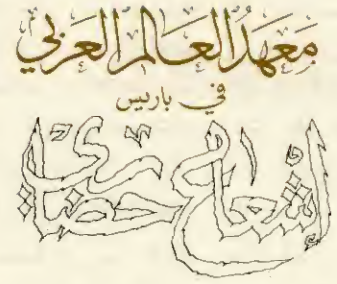 معهد العالم العربي
في باريس
إشعاع حضاري